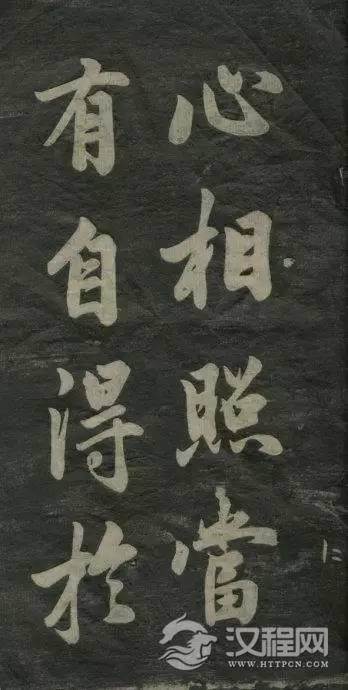 心相照當
有自得於
仁
汉程网
WWW.HTTPCN.COM